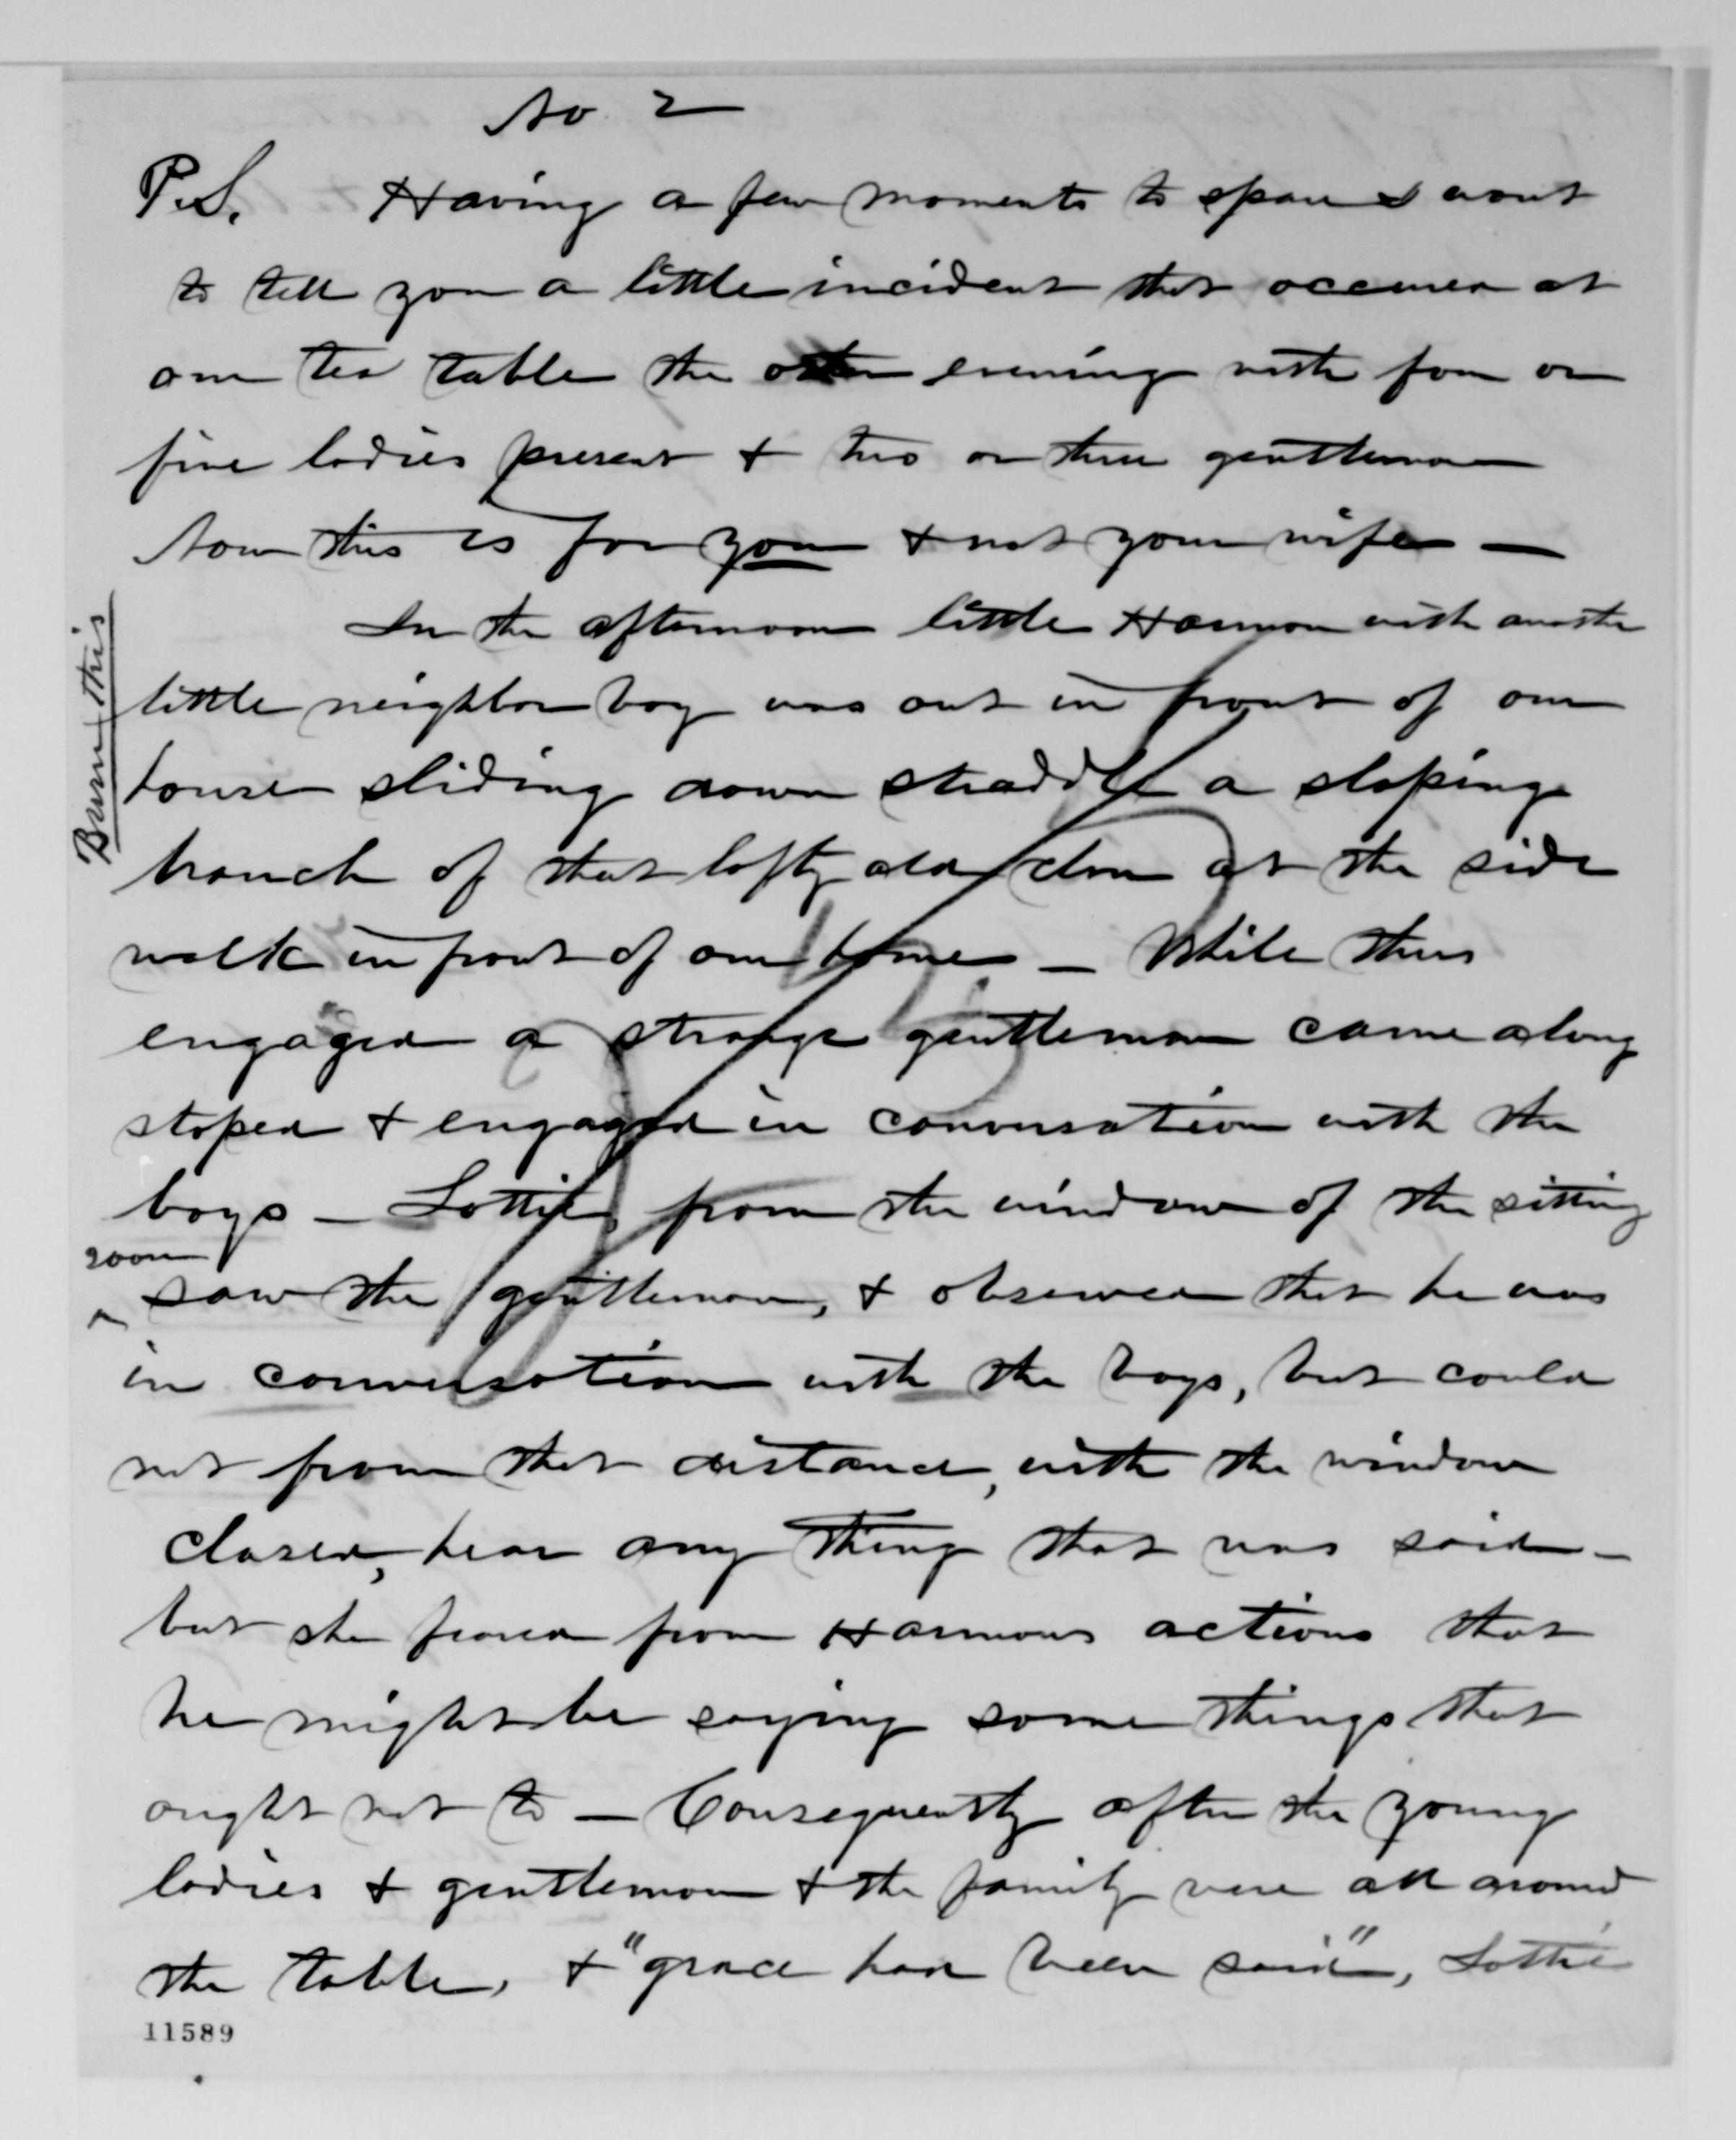 No. 2
P.S. Having a few moments to spare I want
to tell you a little incident that occurred at
our tea table the other evening with four or
five ladies present & two or three gentlemen
Now this is for you & not your wife —
In the afternoon little Harmon with another
little neighbor boy was out in front of our
house sliding down straddle a sloping
branch of that lofty old elm at the side
walk in front of our home — While thus
engaged a strange gentleman came along
stoped & engaged in conversation with the
boys — Lottie, from the window of the sitting
room
saw the gentleman, & observed that he was
in conversation with the boys, but could
not from that distance, with the window
closed, hear any thing that was said —
but she feared from Harmons actions that
he might be saying some things that
ought not to — Consequently after the young
ladies & gentlemen & the family were all around
the table, & "grace had been said", Lottie
Burn this
11589